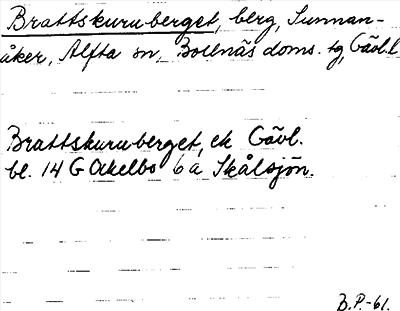 Brattskuruberget, berg, Sunnan-
åker, Alfta sn, Bollnäs doms. tg, Gävl.l
Brattskuruberget, ek Gävl.
bl. 14 G Ockelbo 6 a Skålsjön.
B.P.-61.